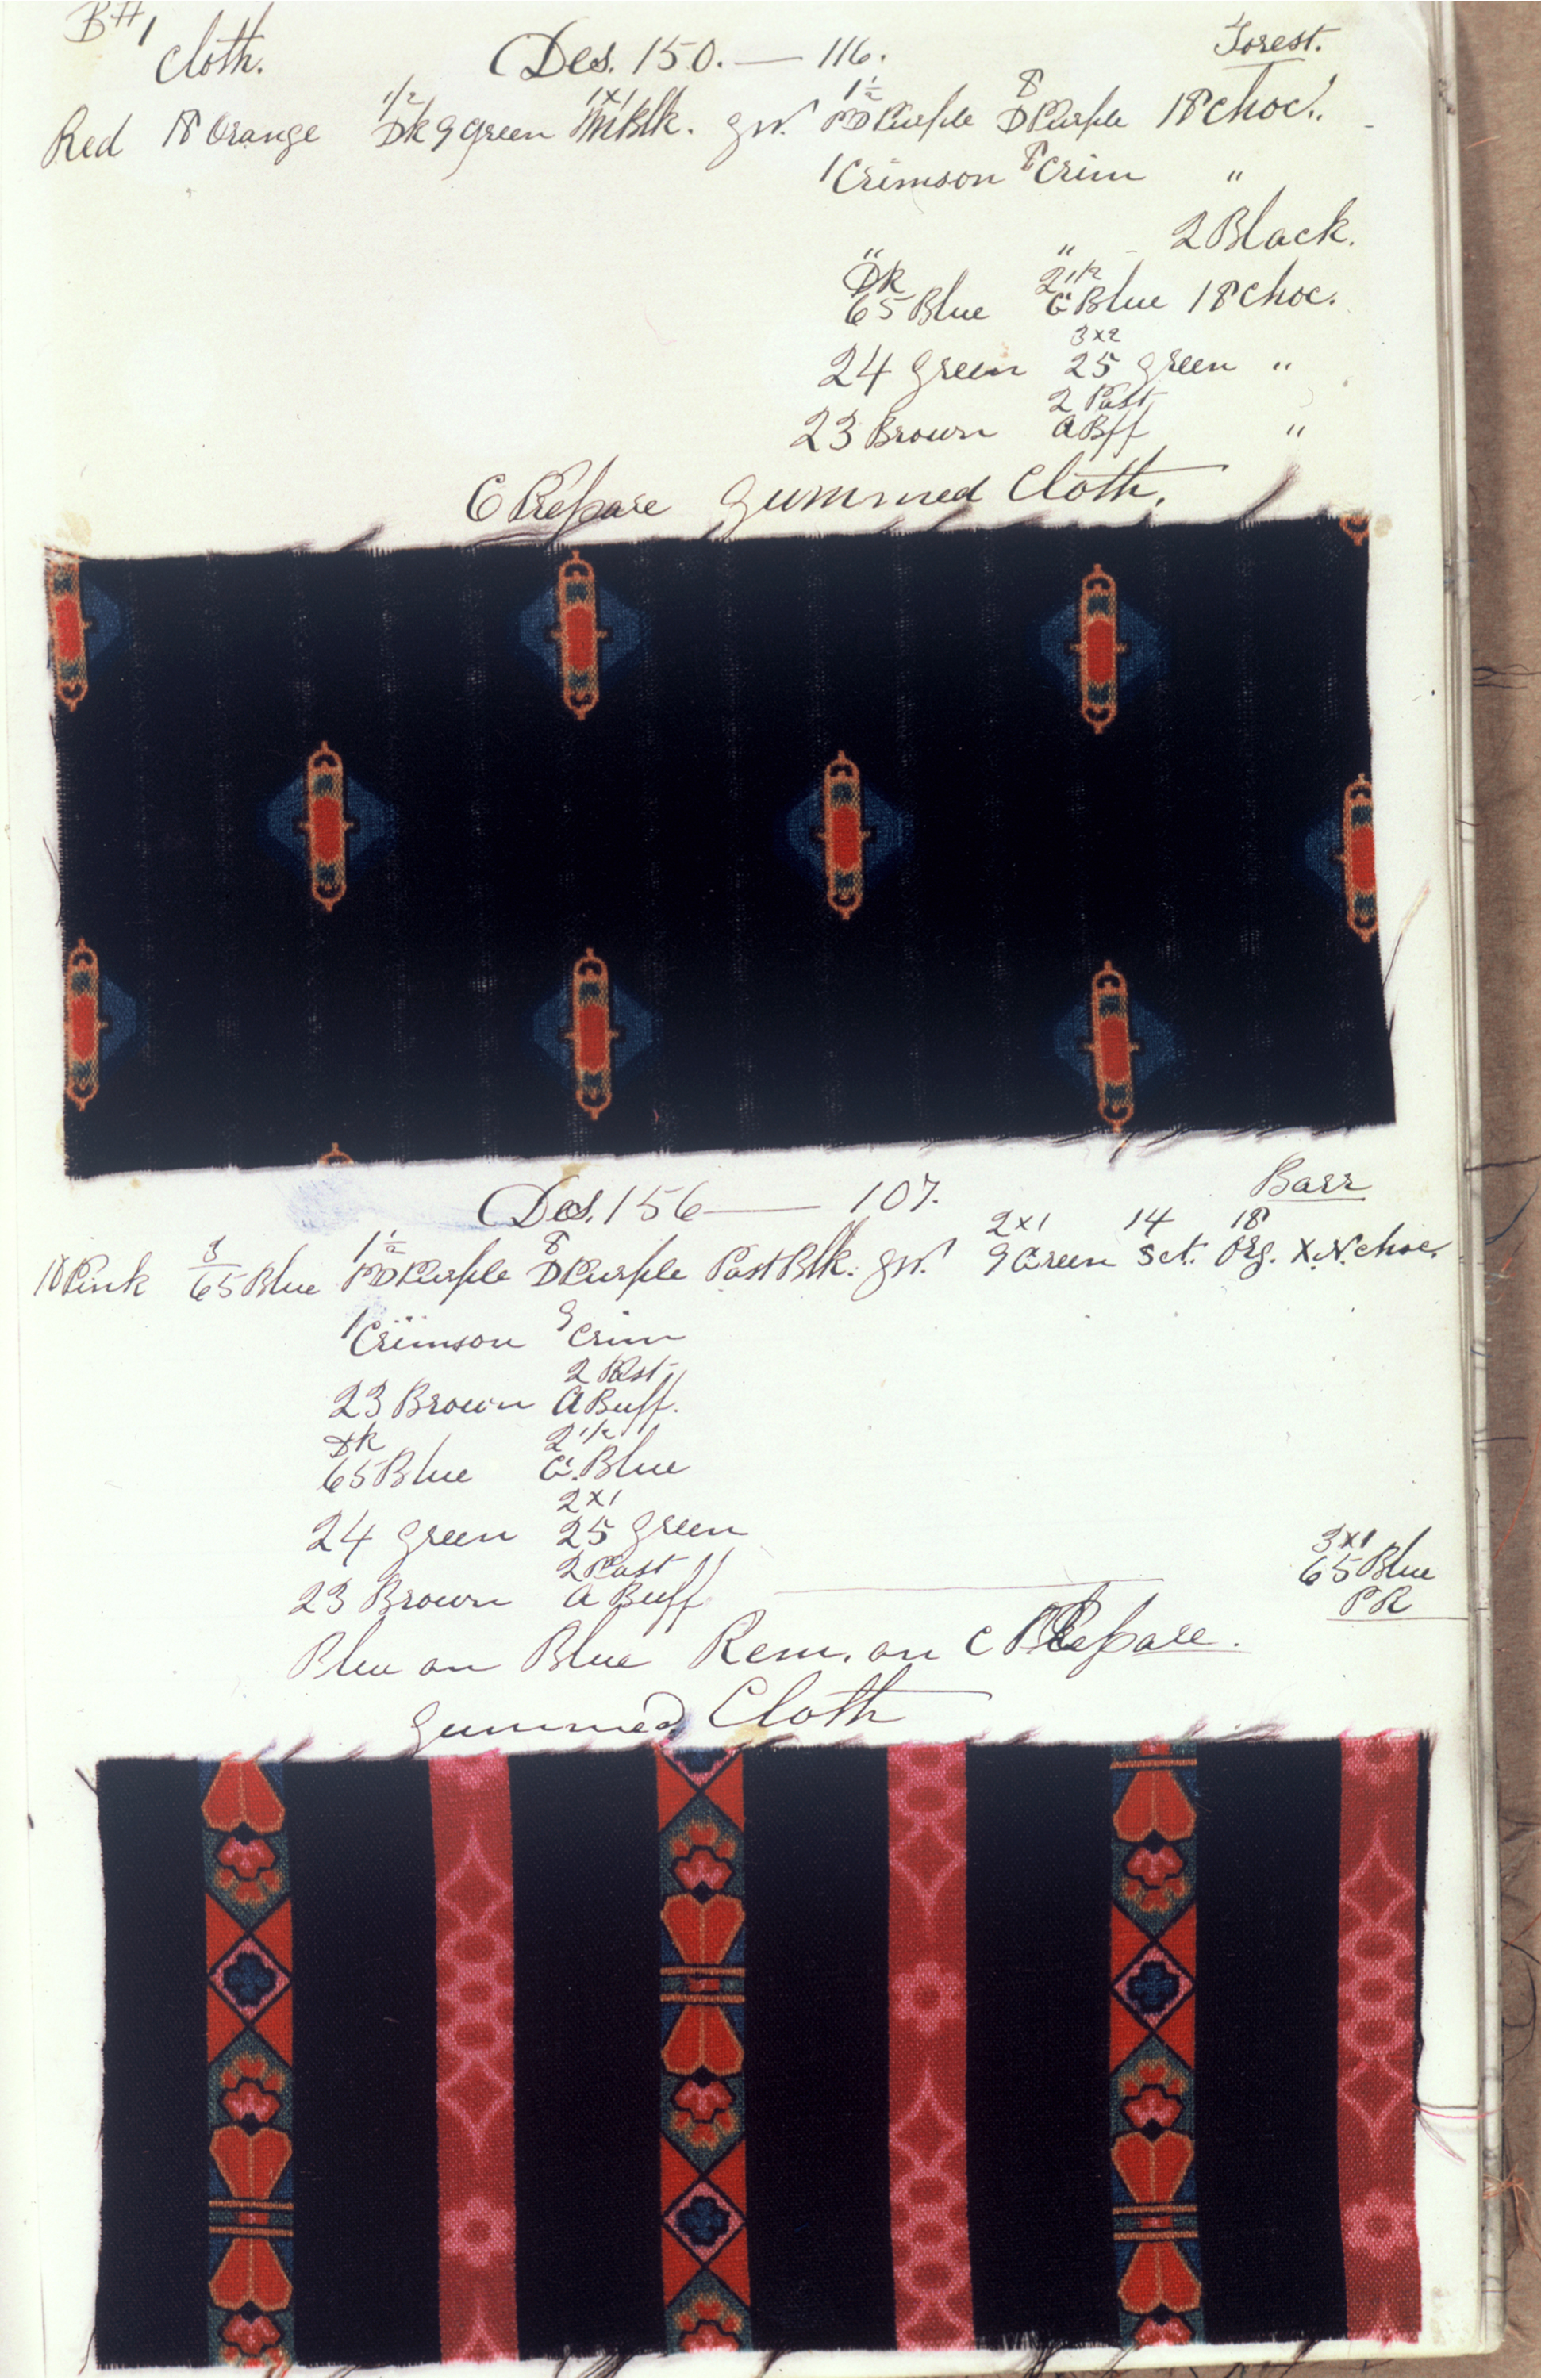 B#1
Cloth. Des. 150. — 116. Forest.
1/2 1x1 1½ 8
Red 18 Orange Dk 9 Green Blk. gr. PD Purple D Purple 18 Choc.
1 Crimson 8 Crim "
" " 2 Black.
Dk 2 1/2
65 Blue C Blue 18 Choc.
3x2
24 Green 25 Green "
2 Past
23 Brown A Bff "
C Prepare Gummed Cloth.
Des. 156 — 107. Barr
3 1½ 8 2x1 14 18
18 Pink 65 Blue PD Purple D Purple Past Blk. gr. 9 Green Sct. Org. X.N. Choc.
1 Crimson 9 Crim
2 Past
23 Brown A Buff.
Dk 2 1/2
65 Blue C. Blue
2x1
24 Green 25 Green
2 Past
23 Brown A Buff
3x1
65 Blue
PR
Blue on Blue Rem. on C Prepare.
Gummed Cloth